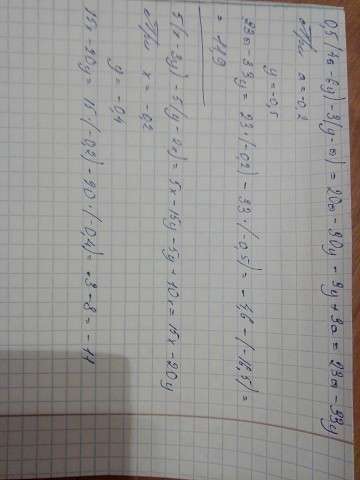 0,5(4a-6y)-3(y-a)=20a-30y-3y+3a=23a-33y
при a=-0,2
y=-0,5
23a-33y=23·(-0,2)-33·(-0,5)=-4,6-(-16,5)=
=11,9
5(x-3y)-5(y-2x)=5x-15y-5y+10x=15x-20y
при x=-0,2
y=-0,4
15x-20y=15·(-0,2)-20·(-0,4)=-3-8=-11